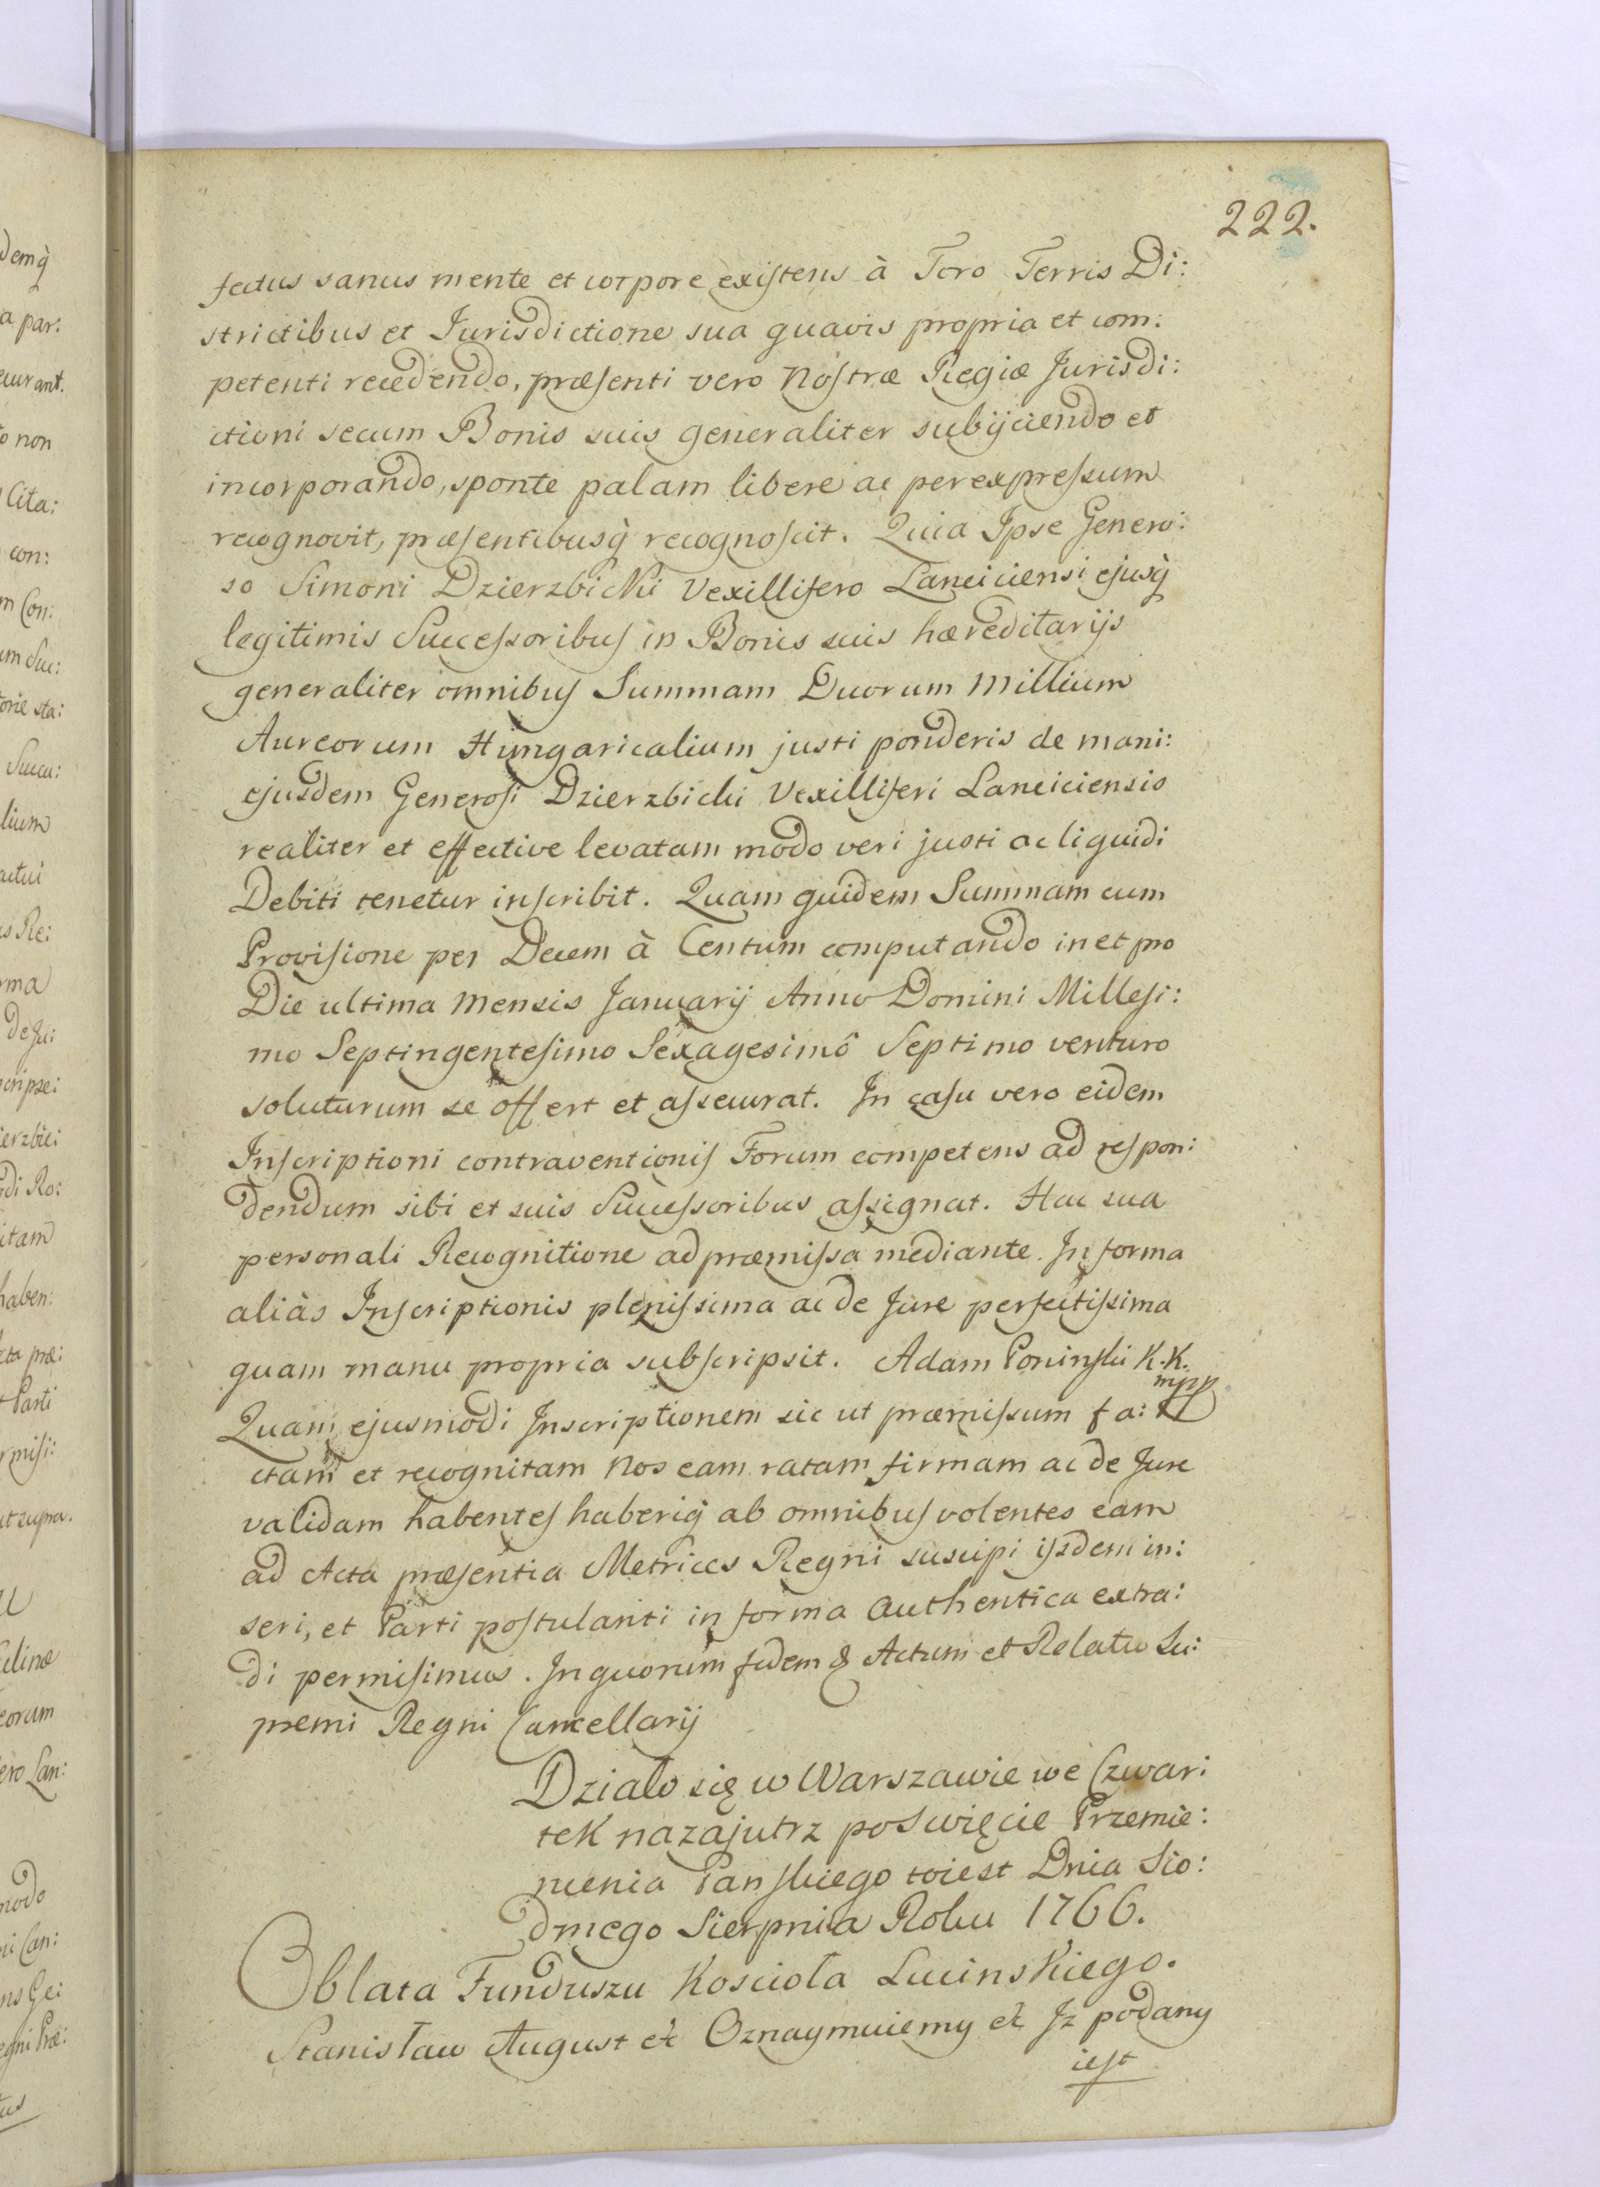 222.
fectus sanus mente et corpore existens à Foro Terris Di:
strictibus et Jurisdictione sua quavis propria et com:
petenti recedendo, præsenti vero Nostræ Regiæ Jurisdi:
ctioni secum Bonis suis generaliter subijciendo et
incorporando, sponte palam libere ac per expressum
recognovit, præsentibusq̀ recognoscit. Quia Ipse Genero:
so Simoni Dzierzbicki Vexillifero Lanciciensi ejusq̀
legitimis Successoribus in Bonis suis hæreditarijs
generaliter omnibus Summam Duorum Millium
Aureorum Hungaricalium justi ponderis de mani:
ejusdem Generosi Dzierzbicki Vexilliferi Lanciciensis
realiter et effective levatam modo veri justi ac liquidi
Debiti tenetur inscribit. Quam quidem Summam cum
Provisione per Decem à Centum computando in et pro
Die ultima Mensis Januarij Anno Domini Millesi:
mo Septingentesimo Sexagesimô Septimo venturo
soluturum se offert et assecurat. In casu vero eidem
Inscriptioni contraventionis Forum competens ad respon:
dendum sibi et suis Successoribus assignat. Hac sua
personali Recognitione ad præmissa mediante. In forma
aliàs Inscriptionis plenissima ac de Jure perfectissima
quam manu propria subscripsit. Adam Poninski K. K.
mpp
Quam ejusmodi Inscriptionem sic ut præmissum fa:
ctam et recognitam Nos eam ratam firmam ac de Jure
validam habentes haberiq̀ ab omnibus volentes eam
ad Acta præsentia Metrices Regni suscipi ijsdem in:
seri, et Parti postulanti in forma authentica extra:
di permisimus. In quorum fidem & Actum et Relatio Su:
premi Regni Cancellarij
Działo się w Warszawie we Czwar:
tek nazajutrz poswięcie Przemie:
nienia Panskiego toiest Dnia Sio:
dmego Sierpnia Roku 1766.
Oblata Funduszu Kosciołа Lucinskiego.
Stanisław August et Oznaymuiemy et Jz podany
iest